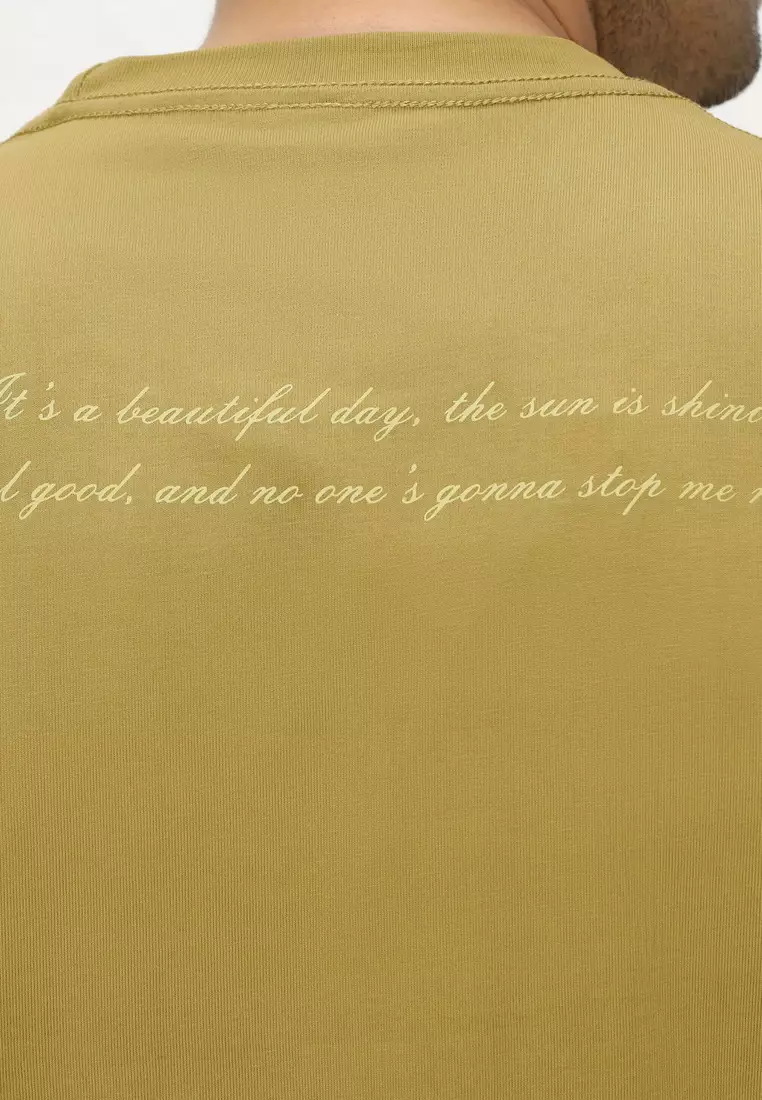 It's a beautiful day, the sun is
good, and no one's gonna stop me